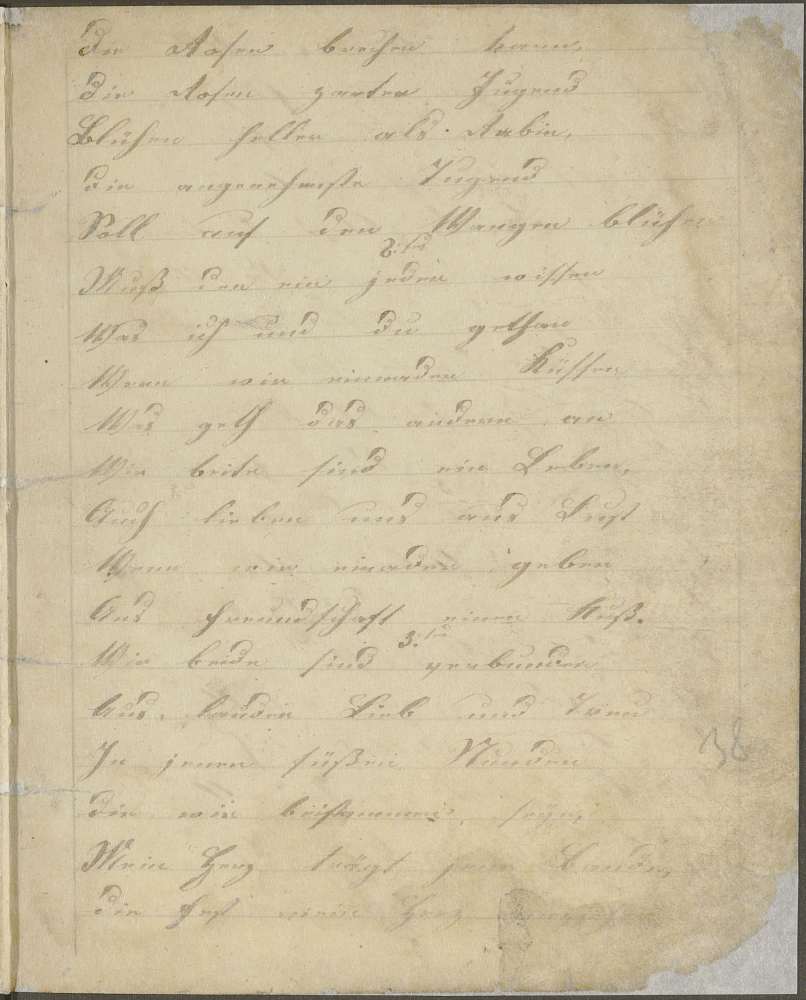 Die Rosen brechen kann,
die Rosen zarter Jugend
Blühen heller als Rubin,
die angenehmste Tugend
Soll auf den Wangen blühen
2.tes
Muß den ein jeder wissen
Was ich und du gethan
Wenn wir einander Küssen
Was geth das andere an
Wir beite sind ein Leben,
Auch lieben uns aus Lust
Wenn wir einader geben
Aus Freundschaft einen Kuß.
3.tes
Wir beide sind verbunden
Aus lauder Lieb und Treu
In jenen süßen Stunden
die wir beisammen seyn,
Mein Herz trägt jene Bande,
die fest mein Herz
38